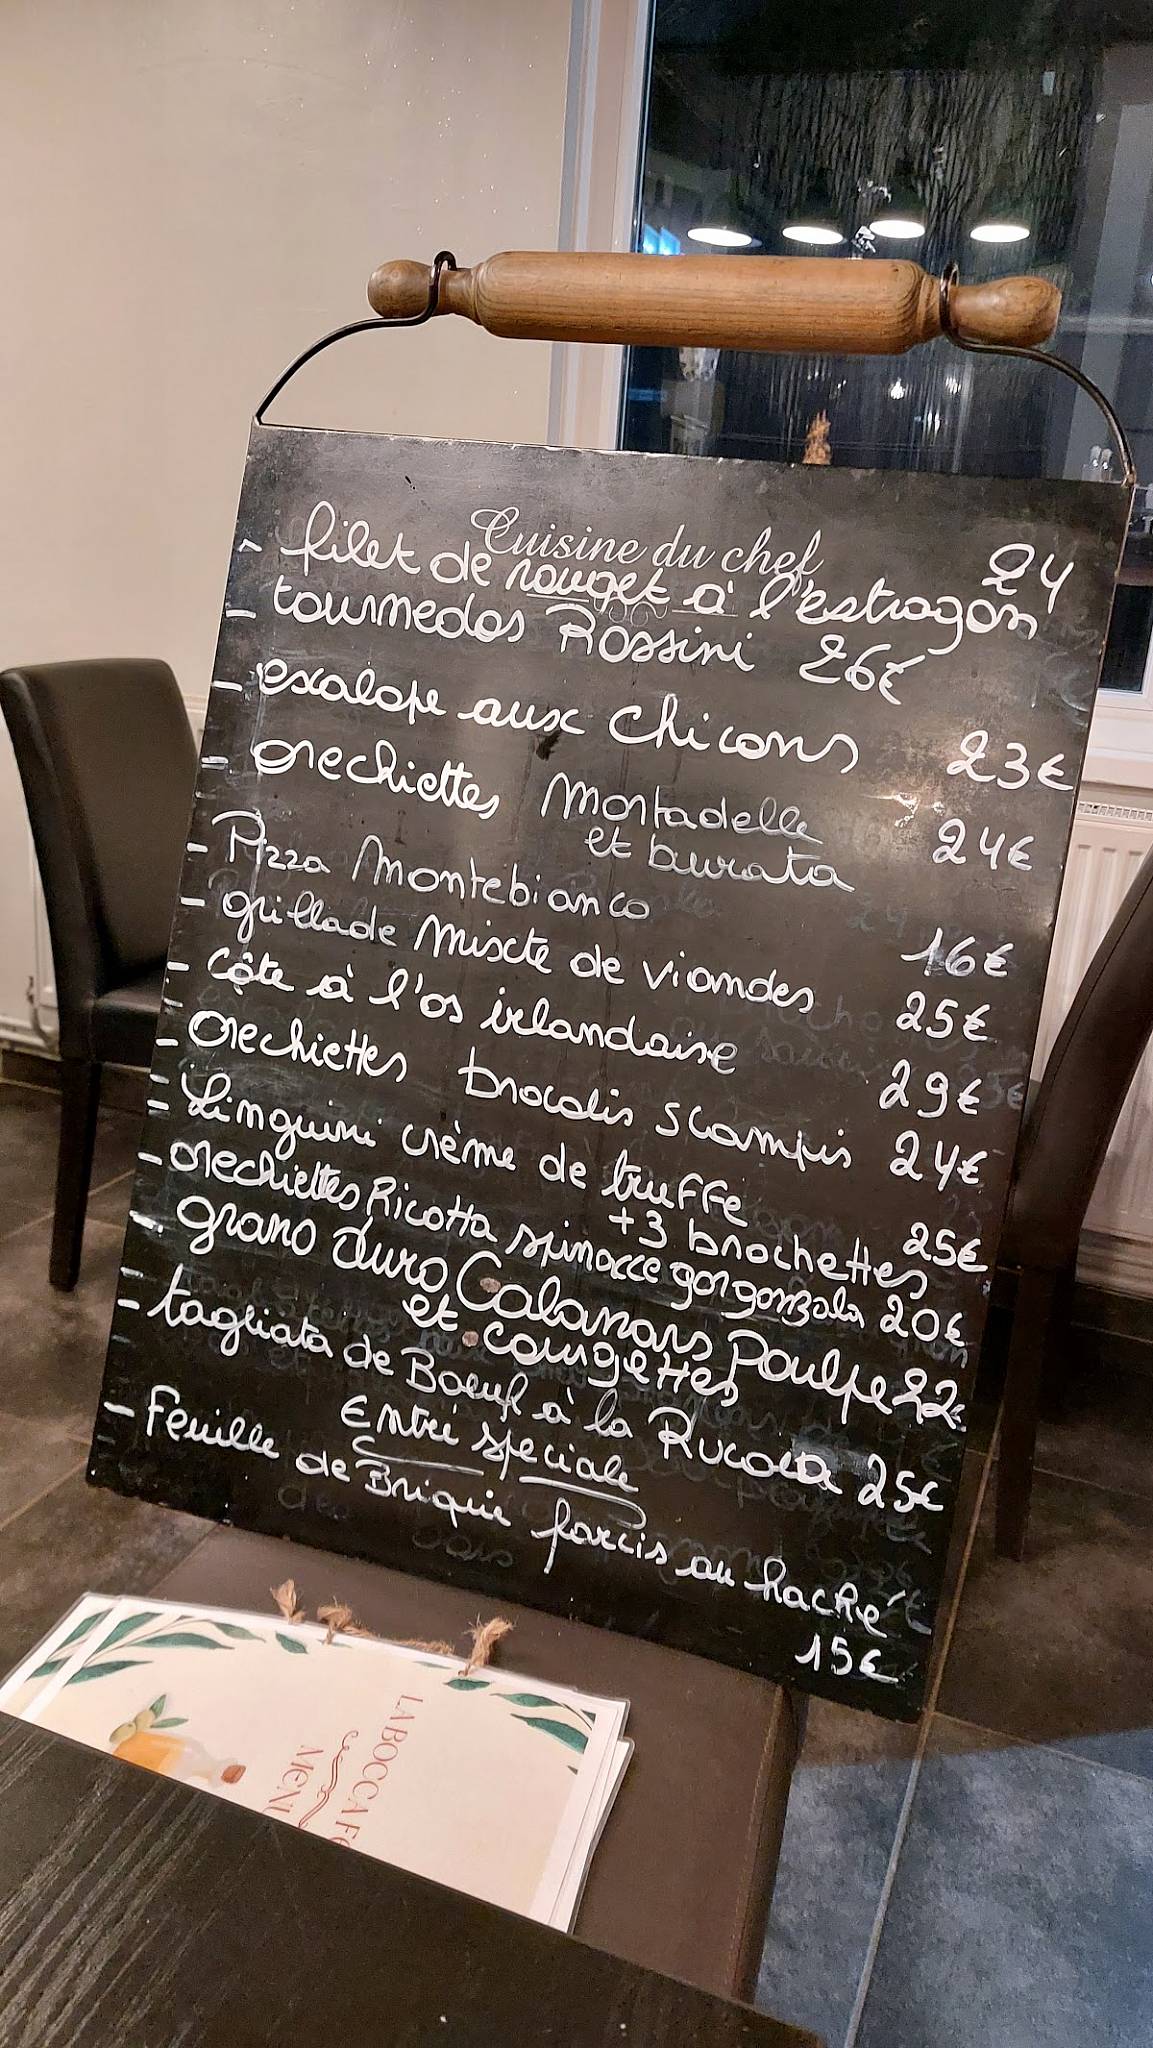 Cuisine du chef
- filet de rouget à l'estragon 24
- tournedos Rossini 26€
- exalope aux chicons 23€
- orechiettes Mortadelle 24€
et burata
- Pizza Montebianco 16€
- grillade Mixte de viandes 25€
- côte à l'os irlandaise 29€
- orechiettes brocolis scampis 24€
- Linguini crème de truffe
+3 brochettes 25€
- orechiettes Ricotta spinacce gorgonzola 20€
- grano duro Calamars Poulpe 22€
et courgettes
- tagliata de Boeuf à la Rucola 25€
Entré speciale
- Feuille de Brique farcis au haché
15€
LA BOCCA
MENU